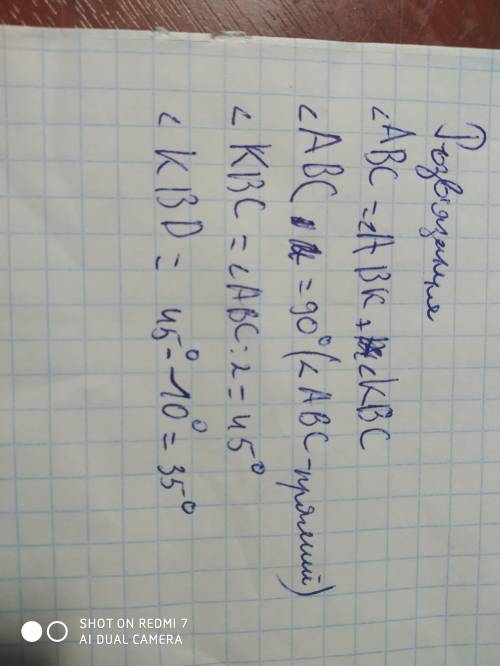 Розв'язання
∠ABC = ∠ABK + ∠KBC
∠ABC = 90° (∠ABC - прямий)
∠KBC = ∠ABC : 2 = 45°
∠KBD = 45° - 10° = 35°
SHOT ON REDMI 7
AI DUAL CAMERA